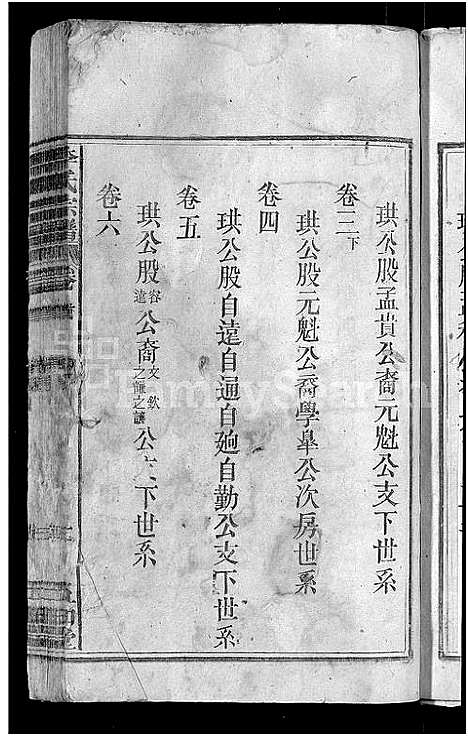 珙公股孟貴公裔元魁公支下世系
卷三下
珙公股元魁公裔學皐公次房世系
卷四
珙公股自遠自通自廻自勤公支下世系
卷五
珙公股容遠公裔文欽之謙之讓公支下世系
卷六
李氏宗譜 卷首
FamilySearch